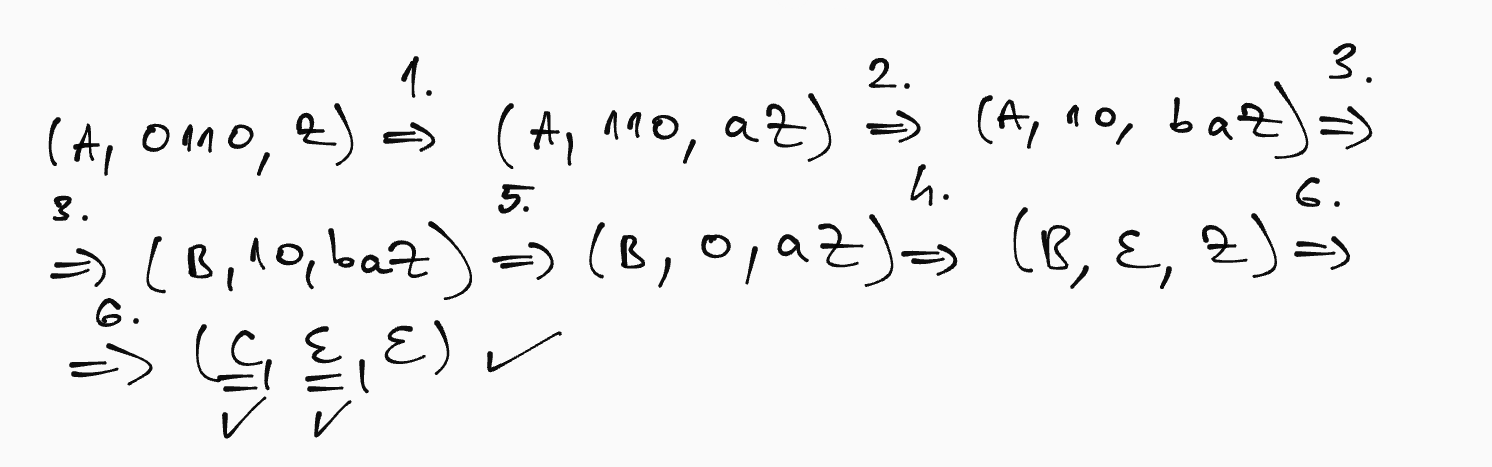 (A, 0110, Z) ⇒ 1. (A, 110, aZ) ⇒ 2. (A, 10, baZ) ⇒ 3.
3. ⇒ (B, 10, baZ) ⇒ 5. (B, 0, aZ) ⇒ 4. (B, ε, Z) ⇒ 6.
6. ⇒ (C, ε, ε) ✓
✓ ✓